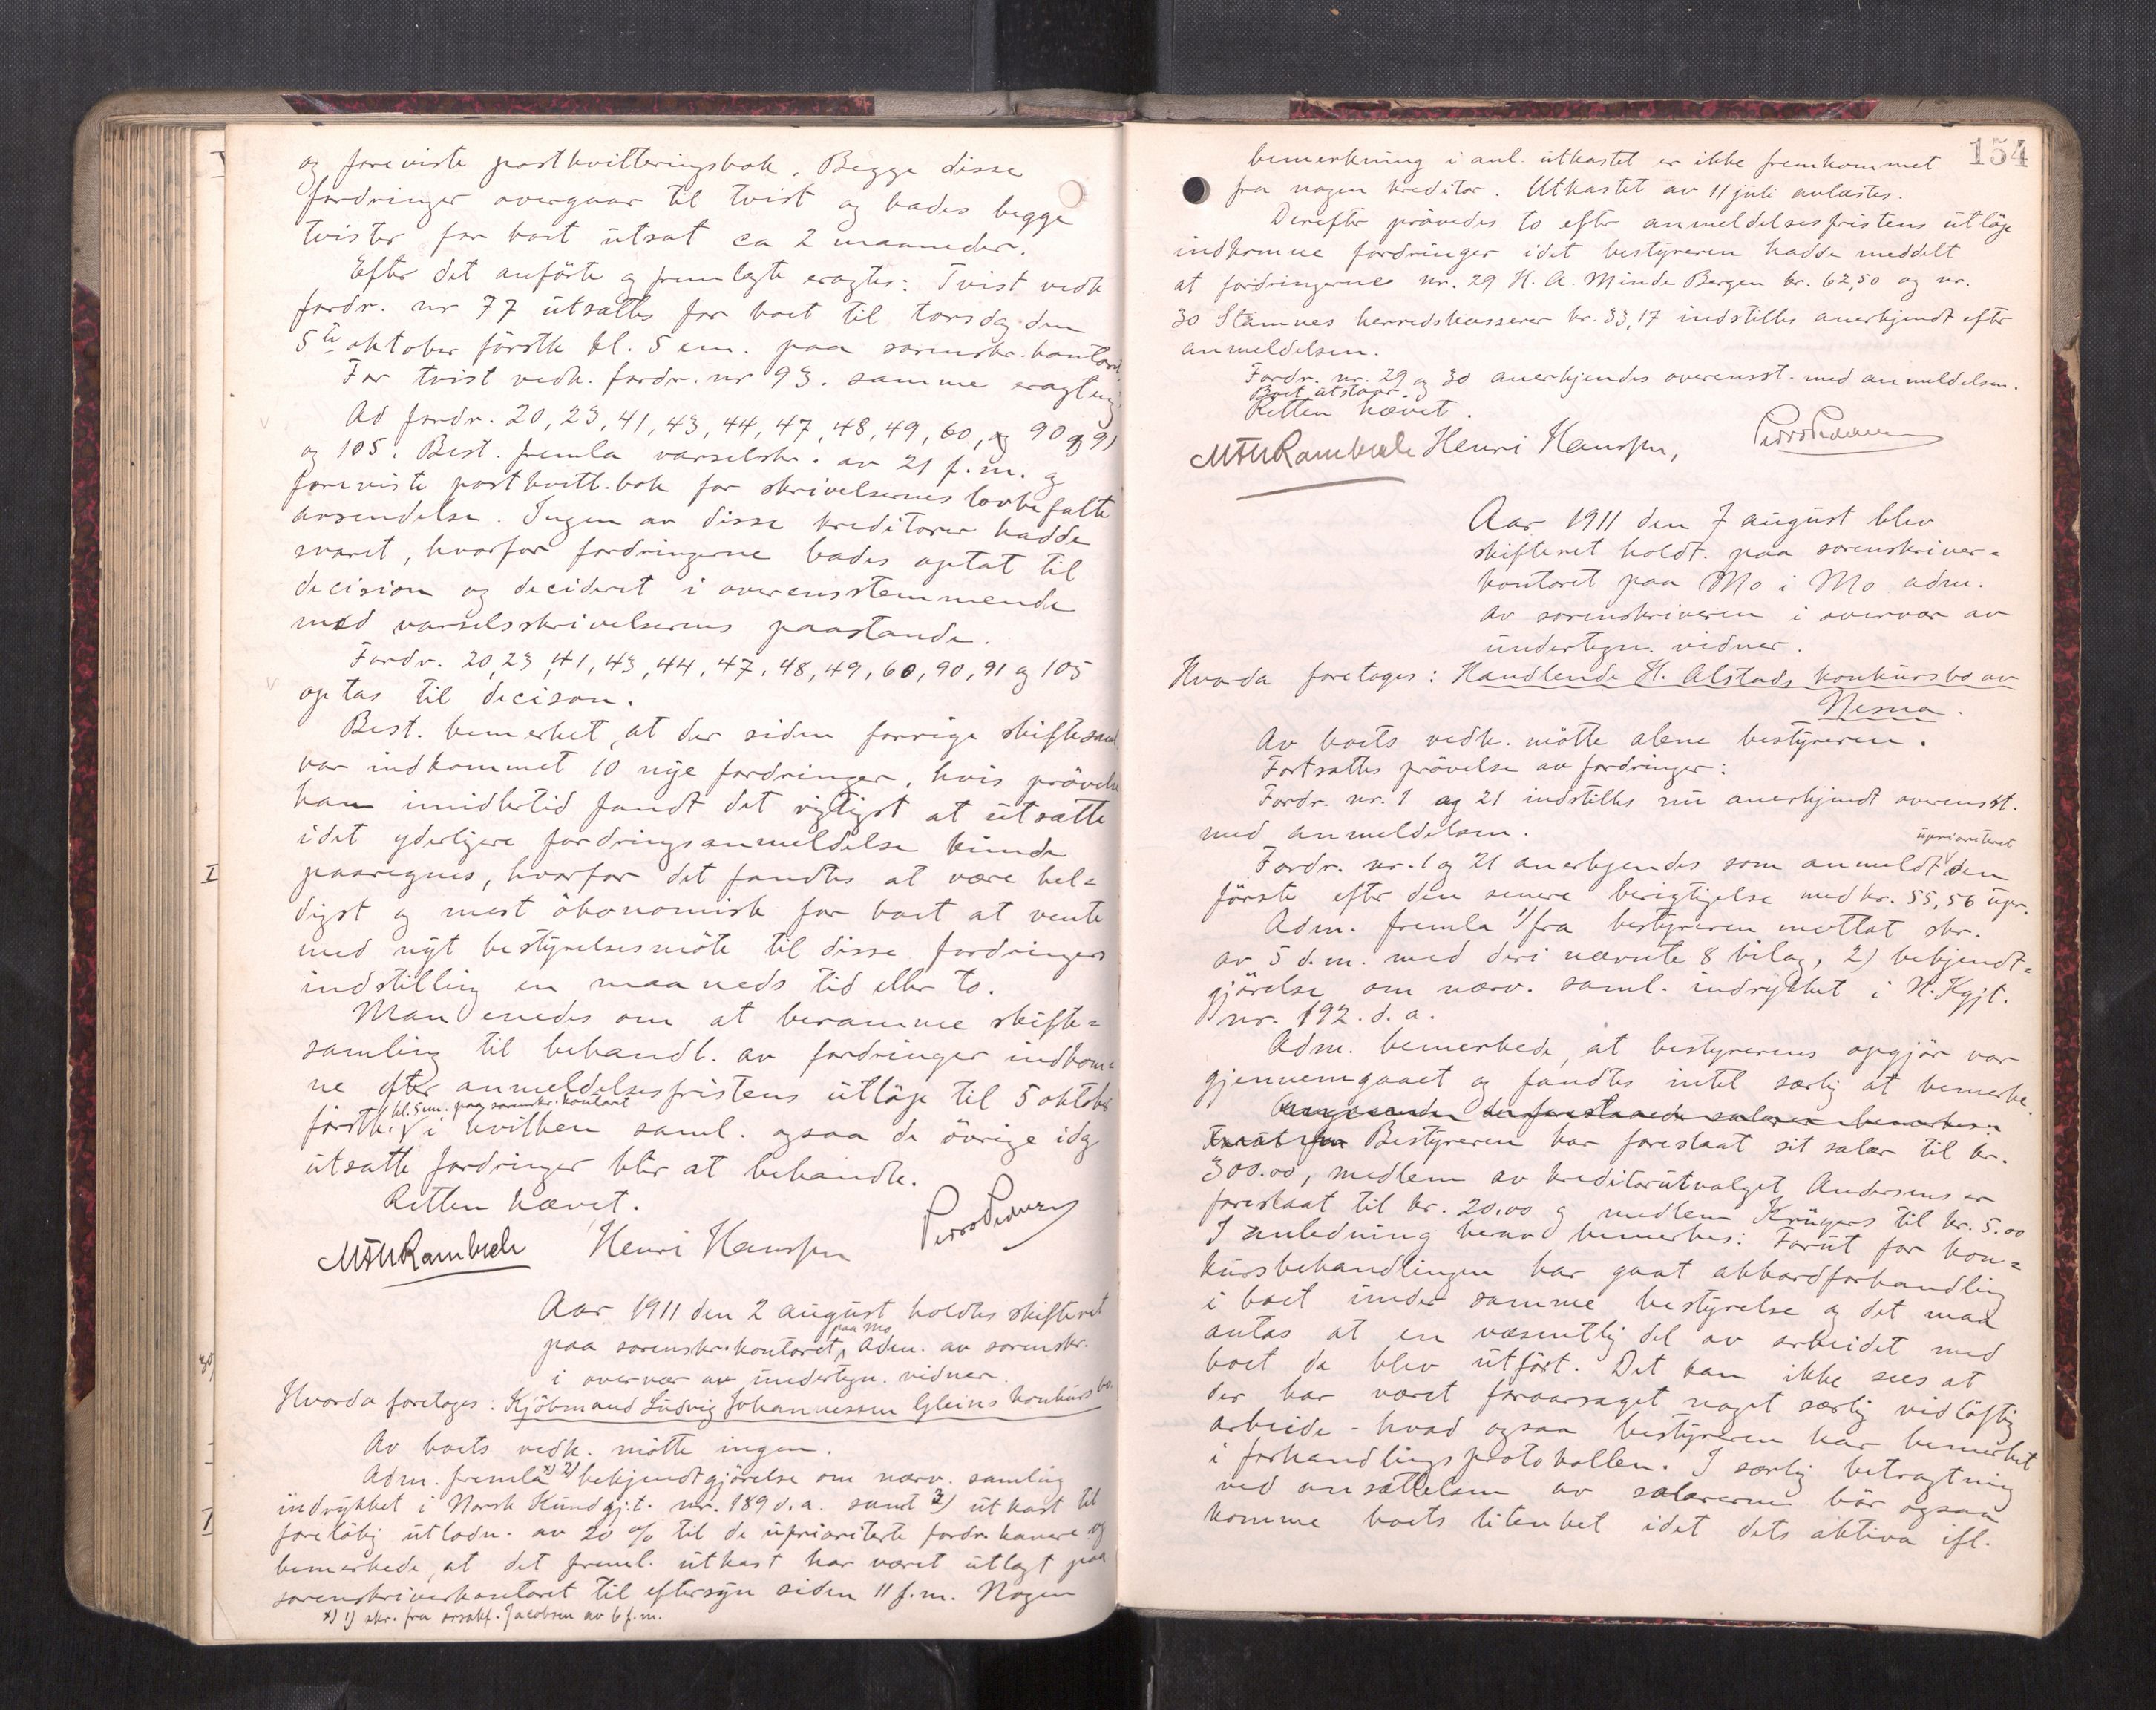 og foreviste postkvitteringsbok. Begge disse
fordringer overgaar til tvist og bades begge
tvister for boet utsat ca 2 maaneder.
Efter det anførte og fremlagte eragtes: Tvist vedk
fordr. nr 77 utsættes for boet til torsdag den
5te oktober førstk kl. 5 em. paa sorenskr. kontoret
For tvist vedk. fordr. nr 93. samme eragtning.
Ad fordr. 20, 23, 41, 43, 44, 47, 48, 49, 60, og 90 og 91
og 105. Best. fremla varselskr. av 21 f.m. og
foreviste postkvitt.bok for skrivelsernes lovbefalte
avsendelse. Ingen av disse kreditorer hadde
svaret, hvorfor fordringerne bades optat til
decision og decideret i overensstemmende
med varselsskrivelsernes paastande.
Fordr. 20, 23, 41, 43, 44, 47, 48, 49, 60, 90, 91 og 105
optas til decison.
Best. bemerket, at der siden forrige skiftesaml.
var indkommet 10 nye fordringer, hvis prøvelse
han imidlertid fandt det rigtigst at utsætte
idet yderligere fordringsanmeldelse kunde
paaregnes, hvorfor det fandtes at være hel=
digst og mest økonomisk for boet at vente
med nyt bestyrelsesmøte til disse fordringers
indstilling en maaneds tid eller to.
Man enedes om at beramme skifte=
samling til behandl. av fordringer indkom=
ne efter anmeldelsesfristens utløp til 5 oktober
kl. 5 em. paa sorenskr. kontoret
førstk. i hvilken saml. ogsaa de øvrige idag
utsatte fordringer blir at behandle.
Retten hævet.
Henri Hanssen
Aar 1911 den 2 august holdtes skifteret
paa Mo
paa sorenskr. kontoret, Adm. av sorenskr.
i overvær av undertegn. vidner.
Hvorda foretoges: Kjøbmand Ludvig Johannessen Gleins konkursbo.
Av boets vedk. møtte ingen.
Adm. fremla x) 2) bekjendtgjørelse om nærv. samling
indrykket i Norsk Kundgj.t. nr. 189 d.a. samt 3) utkast til
foreløbig utlodn. av 20 % til de uprioriterte fordr.havere og
bemerkede, at det freml. utkast har været utlagt paa
sorenskriverkontoret til eftersyn siden 11 f.m. Nogen
x) 1) skr. fra orsakf. Jacobsen av 6 f.m.
154
bemerkning i anl. utkastet er ikke fremkommet
fra nogen kreditor. Utkastet av 11 juli avlæstes.
Derefter prøvedes to efter anmeldelsesfristens utløp
indkomne fordringer idet bestyreren hadde meddelt
at fordringerne nr. 29 H. A. Minde Bergen kr. 62,50 og nr.
30 Stamnes herredskasserer kr. 33,17 indstilles anerkjendt efter
anmeldelsen.
Fordr. nr. 29 og 30 anerkjendes overensst. med anmeldelsen.
Boet utstaar.
Retten hævet.
Henri Hanssen,
Aar 1911 den 7 august blev
skifteret holdt paa sorenskriver=
kontoret paa Mo i Mo adm.
av sorenskriveren i overvær av
undertegn. vidner.
Hvorda foretoges: Handlende H. Alstads konkursbo av
Nesna.
Av boets vedk. møtte alene bestyreren.
Fortsattes prøvelse av fordringer:
Fordr. nr. 1 og 21 indstilles nu anerkjendt overensst.
med anmeldelsen.
uprioriteret
Fordr. nr. 1 og 21 anerkjendes som anmeldt den
første efter den senere berigtigelse med kr. 55,56 upr.
Adm. fremla 1) fra bestyreren mottat skr.
av 5 d.m. med deri nævnte 8 bilag, 2) bekjendt=
gjørelse om nærv. saml. indrykket i N. Kgjt.
nr. 192 d.a.
Adm. bemerkede, at bestyrerens opgjør var
gjennemgaaet og fandtes intet særlig at bemerke.
Angaaende de foreslaaede salærer bemerkes:
Forut for Bestyreren har foreslaat sit salær til kr.
300.00, medlem av kreditorutvalget Andersens er
foreslaat til kr. 20.00 og medlem Krügers til kr. 5.00
I anledning herav bemerkes: Forut for kon=
kursbehandlingen har gaat akkordforhandling
i boet under samme bestyrelse og det maa
antas at en væsentlig del av arbeidet med
boet da blev utført. Det kan ikke sees at
der har været foraarsaget noget særlig vidløftig
arbeide - hvad ogsaa bestyreren har bemerket
i forhandlingsprotokollen. I særlig betragtning
ved ansættelsen av salærerne bør ogsaa
komme boets litenhet idet dets aktiva ifl.